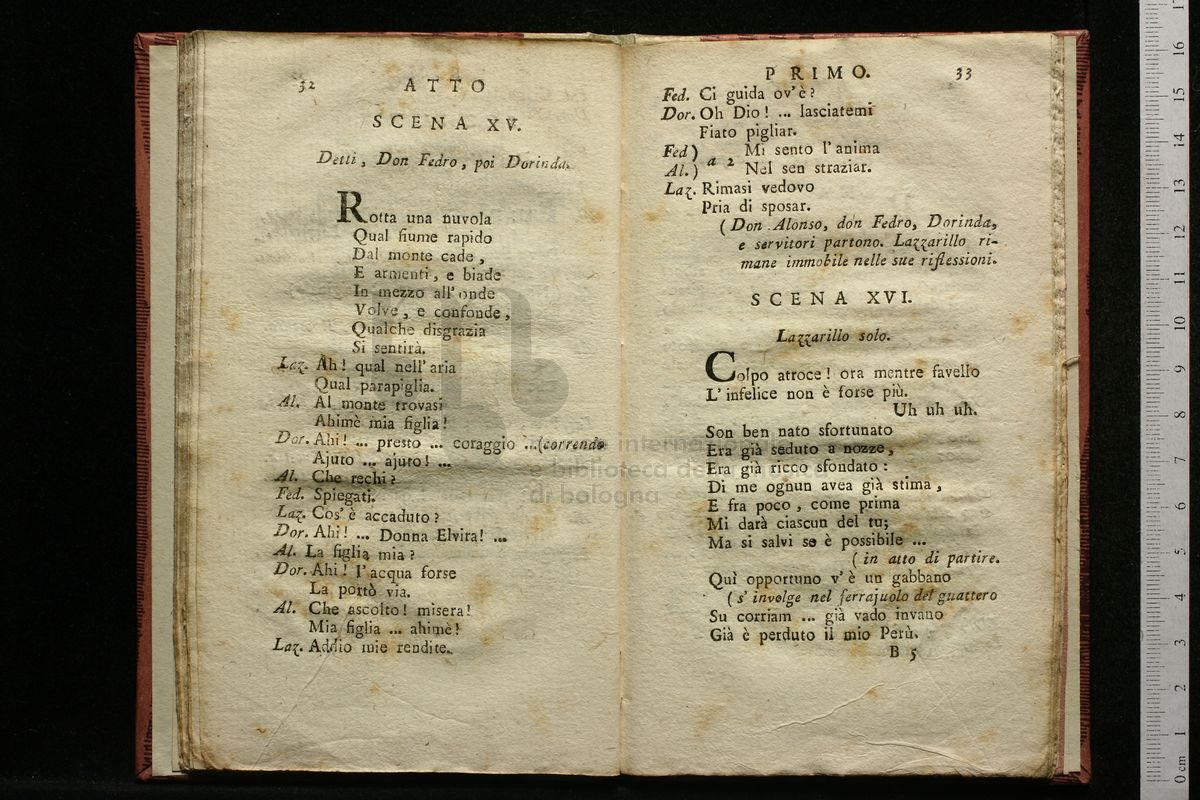 32 ATTO
SCENA XV.
Detti, Don Fedro, poi Dorinda.
Rotta una nuvola
Qual fiume rapido
Dal monte cade,
E armenti, e biade
In mezzo all' onde
Volve, e confonde,
Qualche disgrazia
Si sentirà.
Laz. Ah! qual nell' aria
Qual parapiglia.
Al. Al monte trovasi
Ahimè mia figlia!
Dor. Ahi! ... presto ... coraggio ...(correndo
Ajuto ... ajuto! ...
Al. Che rechi?
Fed. Spiegati.
Laz. Cos' è accaduto?
Dor. Ahi! ... Donna Elvira! ...
Al. La figlia mia?
Dor. Ahi! l' acqua forse
La portò via.
Al. Che ascolto! misera!
Mia figlia ... ahimè!
Laz. Addio mie rendite.
PRIMO. 33
Fed. Ci guida ov' è?
Dor. Oh Dio! ... lasciatemi
Fiato pigliar.
Fed) a 2 Mi sento l' anima
Al.) Nel sen straziar.
Laz. Rimasi vedovo
Pria di sposar.
(Don Alonso, don Fedro, Dorinda,
e servitori partono. Lazzarillo ri-
mane immobile nelle sue riflessioni.
SCENA XVI.
Lazzarillo solo.
Colpo atroce! ora mentre favello
L' infelice non è forse più.
Uh uh uh.
Son ben nato sfortunato
Era già seduto a nozze,
Era già ricco sfondato:
Di me ognun avea già stima,
E fra poco, come prima
Mi darà ciascun del tu;
Ma si salvi se è possibile ...
(in atto di partire.
Quì opportuno v' è un gabbano
(s' involge nel ferrajuolo del guattero
Su corriam ... già vado invano
Già è perduto il mio Perù.
B 5
internazionale
e biblioteca de
di bologna
0 cm 1 2 3 4 5 6 7 8 9 10 11 12 13 14 15 16 17